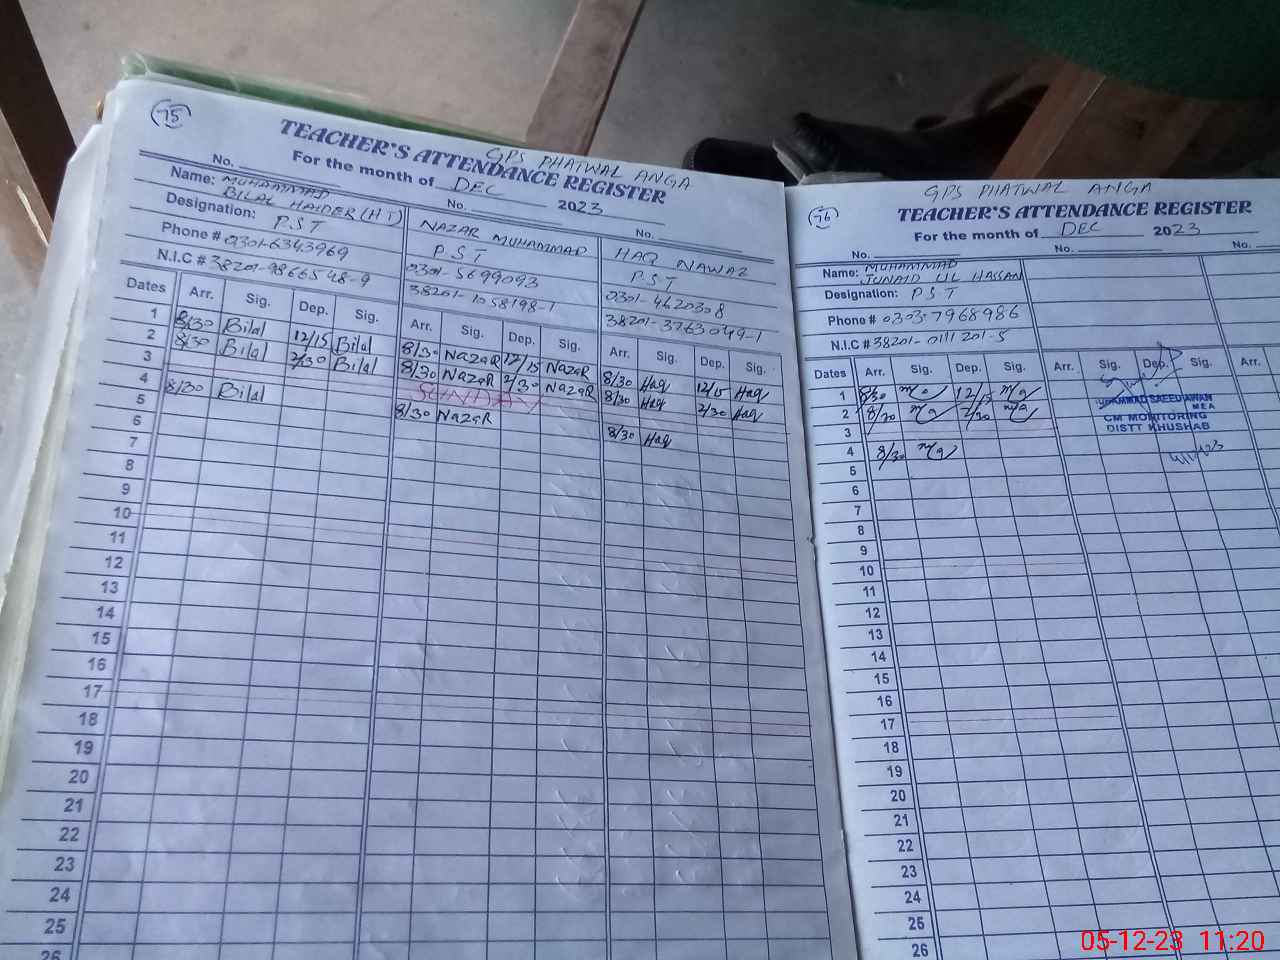 75
GPS PHATWAL ANGA
TEACHER'S ATTENDANCE REGISTER
For the month of DEC 2023
No. No. No.
Name: MUHAMMAD BILAL HAIDER (HT) NAZAR MUHAMMAD HAQ NAWAZ
Designation: P.S.T P.S.T P.S.T
Phone # 0301-6343969 0301-5699093 0301-4620308
N.I.C # 38201-9866548-9 38201-1058198-1 38201-3763049-1
Dates Arr. Sig. Dep. Sig. Arr. Sig. Dep. Sig. Arr. Sig. Dep. Sig.
1 8/30 Bilal 12/15 Bilal 8/30 NAZAR 12/15 NAZAR 8/30 Haq 12/15 Haq
2 8/30 Bilal 2/30 Bilal 8/30 NAZAR 2/30 NAZAR 8/30 Haq 2/30 Haq
3 SUNDAY
4 8/30 Bilal 8/30 NAZAR 8/30 Haq
5
6
7
8
9
10
11
12
13
14
15
16
17
18
19
20
21
22
23
24
25
26
76
GPS PHATWAL ANGA
TEACHER'S ATTENDANCE REGISTER
For the month of DEC 2023
No. No.
Name: MUHAMMAD JUNAID UL HASSAN
Designation: P.S.T
Phone # 0303-7968986
N.I.C # 38201-0111201-5
Dates Arr. Sig. Dep. Sig. Arr. Sig. Dep. Sig. Arr.
1 8/30 12/15
2 8/30 2/30
3
4 8/30
MUHAMMAD SAEED AWAN
MEA
CM MONITORING
DISTT KHUSHAB
5
6
7
8
9
10
11
12
13
14
15
16
17
18
19
20
21
22
23
24
25
26
05-12-23 11:20